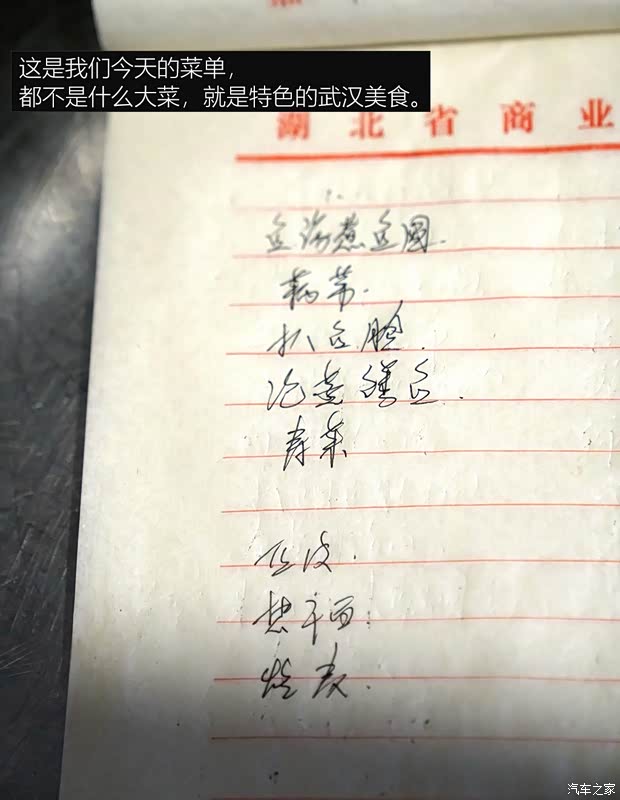 这是我们今天的菜单，
都不是什么大菜，就是特色的武汉美食。
湖北省商业
鱼汤煮鱼圆.
藕带.
扒鱼
泡蒸鳝鱼.
青菜
豆皮.
热干面.
烧麦.
汽车之家